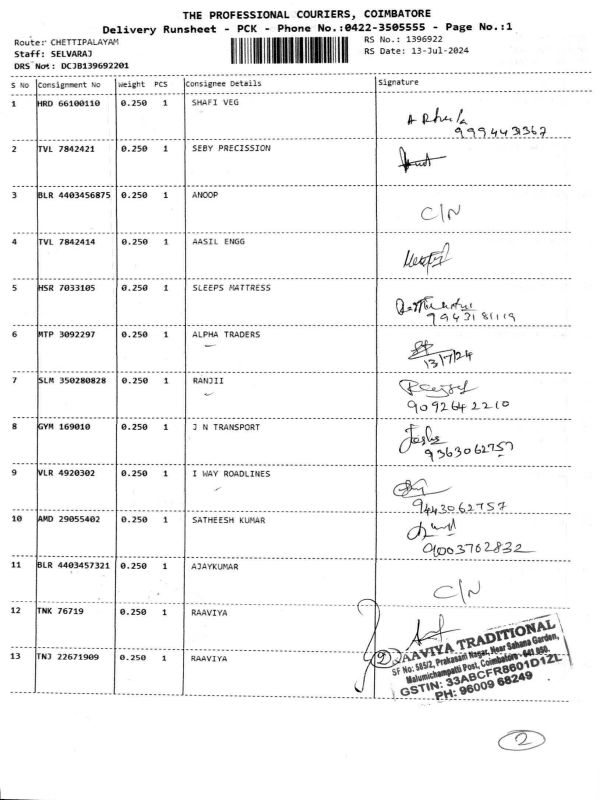 THE PROFESSIONAL COURIERS, COIMBATORE
Delivery Runsheet - PCK - Phone No.:0422-3505555 - Page No.:1
Route: CHETTIPALAYAM RS No.: 1396922
Staff: SELVARAJ RS Date: 13-Jul-2024
DRS Not: DCJB139692201
S No Consignment No Weight PCS Consignee Details Signature
1 HRD 66100110 0.250 1 SHAFI VEG
9994431367
2 TVL 7842421 0.250 1 SEBY PRECISSION
3 BLR 4403456875 0.250 1 ANOOP C/N
4 TVL 7842414 0.250 1 AASIL ENGG
5 HSR 7033105 0.250 1 SLEEPS MATTRESS
9943181119
6 MTP 3092297 0.250 1 ALPHA TRADERS
13/7/24
7 SLM 350280828 0.250 1 RANJII
9092642210
8 GYM 169010 0.250 1 J N TRANSPORT
9363062757
9 VLR 4920302 0.250 1 I WAY ROADLINES
9443062757
10 AMD 29055402 0.250 1 SATHEESH KUMAR
9003702832
11 BLR 4403457321 0.250 1 AJAYKUMAR C/N
12 TNK 76719 0.250 1 RAAVIYA
13 TNJ 22671909 0.250 1 RAAVIYA
2 RAAVIYA TRADITIONAL
SF No: 585/2, Prakasari Nagar, Near Sahana Garden,
Malumichampatti Post, Coimbatore - 641 050.
GSTIN: 33ABCFR8601D1ZL
PH: 96009 68249
2